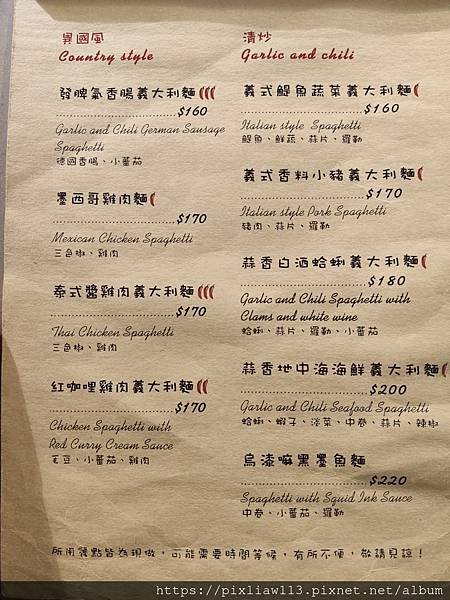 異國風
Country style
發脾氣香腸義大利麵
$160
Garlic and Chili German Sausage
Spaghetti
德國香腸、小蕃茄
墨西哥雞肉麵
$170
Mexican Chicken Spaghetti
三色椒、雞肉
泰式醬雞肉義大利麵
$170
Thai Chicken Spaghetti
三色椒、雞肉
紅咖哩雞肉義大利麵
$170
Chicken Spaghetti with
Red Curry Cream Sauce
毛豆、小蕃茄、雞肉
清炒
Garlic and chili
義式鯷魚蔬菜義大利麵
$160
Italian style Spaghetti
鯷魚、鮮蔬、蒜片、羅勒
義式香料小豬義大利麵
$170
Italian style Pork Spaghetti
豬肉、蒜片、羅勒
蒜香白酒蛤蜊義大利麵
$180
Garlic and Chili Spaghetti with
Clams and white wine
蛤蜊、蒜片、羅勒、小蕃茄
蒜香地中海海鮮義大利麵
$200
Garlic and Chili Seafood Spaghetti
蛤蜊、蝦子、淡菜、中卷、蒜片、辣椒
烏漆嘛黑墨魚麵
$220
Spaghetti with Squid Ink Sauce
中卷、小蕃茄、羅勒
所有餐點皆為現做，可能需要時間等候，有所不便，敬請見諒！
https://pixliaw113.pixnet.net/album